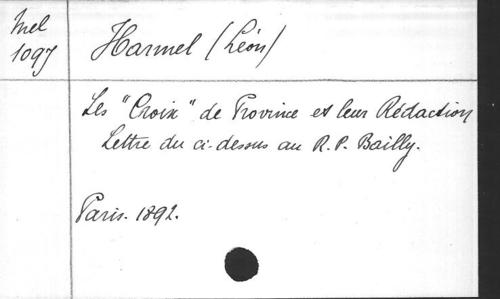 Mel
1097
Harmel (Léon)
Les "Croix" de Province et leur Rédaction
Lettre du ci-dessus au R. P. Bailly.
Paris. 1892.